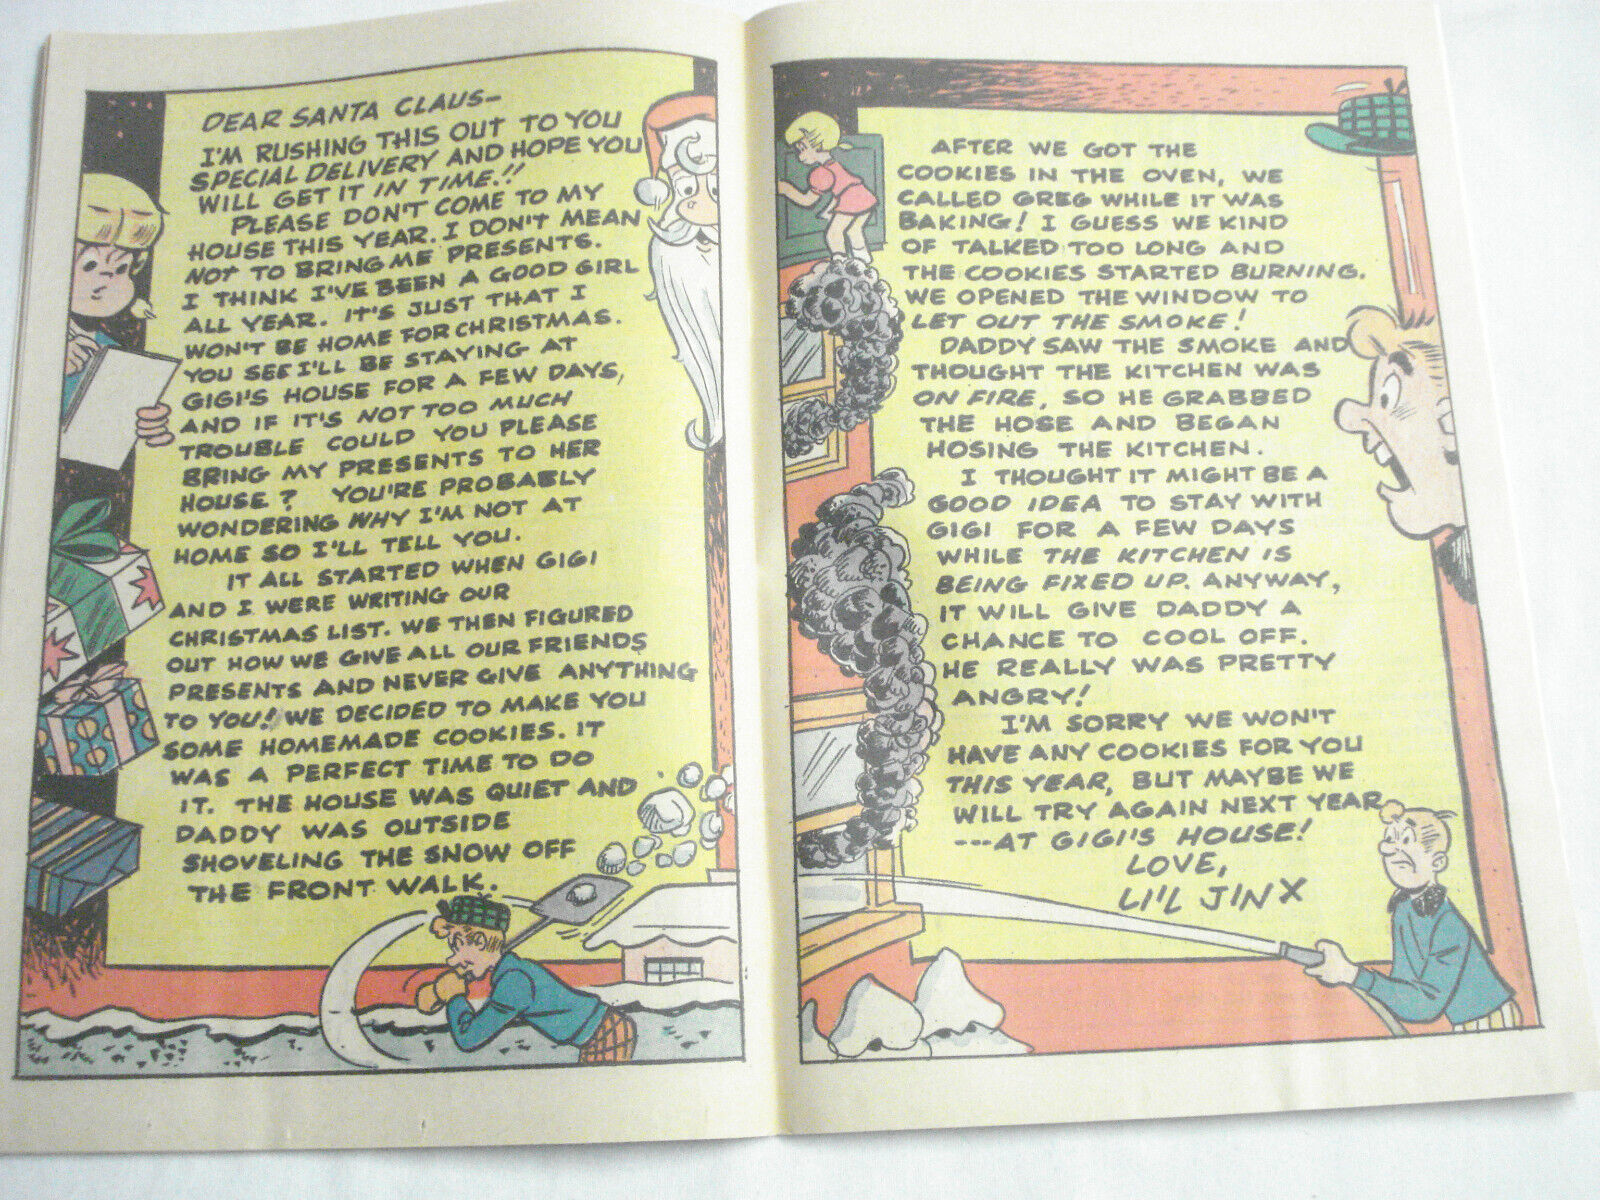 DEAR SANTA CLAUS-
I'M RUSHING THIS OUT TO YOU
SPECIAL DELIVERY AND HOPE YOU
WILL GET IT IN TIME!!
PLEASE DON'T COME TO MY
HOUSE THIS YEAR. I DON'T MEAN
NOT TO BRING ME PRESENTS.
I THINK I'VE BEEN A GOOD GIRL
ALL YEAR. IT'S JUST THAT I
WON'T BE HOME FOR CHRISTMAS.
YOU SEE I'LL BE STAYING AT
GIGI'S HOUSE FOR A FEW DAYS,
AND IF IT'S NOT TOO MUCH
TROUBLE COULD YOU PLEASE
BRING MY PRESENTS TO HER
HOUSE? YOU'RE PROBABLY
WONDERING WHY I'M NOT AT
HOME SO I'LL TELL YOU.
IT ALL STARTED WHEN GIGI
AND I WERE WRITING OUR
CHRISTMAS LIST. WE THEN FIGURED
OUT HOW WE GIVE ALL OUR FRIENDS
PRESENTS AND NEVER GIVE ANYTHING
TO YOU! WE DECIDED TO MAKE YOU
SOME HOMEMADE COOKIES. IT
WAS A PERFECT TIME TO DO
IT. THE HOUSE WAS QUIET AND
DADDY WAS OUTSIDE
SHOVELING THE SNOW OFF
THE FRONT WALK.
AFTER WE GOT THE
COOKIES IN THE OVEN, WE
CALLED GREG WHILE IT WAS
BAKING! I GUESS WE KIND
OF TALKED TOO LONG AND
THE COOKIES STARTED BURNING.
WE OPENED THE WINDOW TO
LET OUT THE SMOKE!
DADDY SAW THE SMOKE AND
THOUGHT THE KITCHEN WAS
ON FIRE, SO HE GRABBED
THE HOSE AND BEGAN
HOSING THE KITCHEN.
I THOUGHT IT MIGHT BE A
GOOD IDEA TO STAY WITH
GIGI FOR A FEW DAYS
WHILE THE KITCHEN IS
BEING FIXED UP. ANYWAY,
IT WILL GIVE DADDY A
CHANCE TO COOL OFF.
HE REALLY WAS PRETTY
ANGRY!
I'M SORRY WE WON'T
HAVE ANY COOKIES FOR YOU
THIS YEAR, BUT MAYBE WE
WILL TRY AGAIN NEXT YEAR
---AT GIGI'S HOUSE!
LOVE,
LI'L JINX